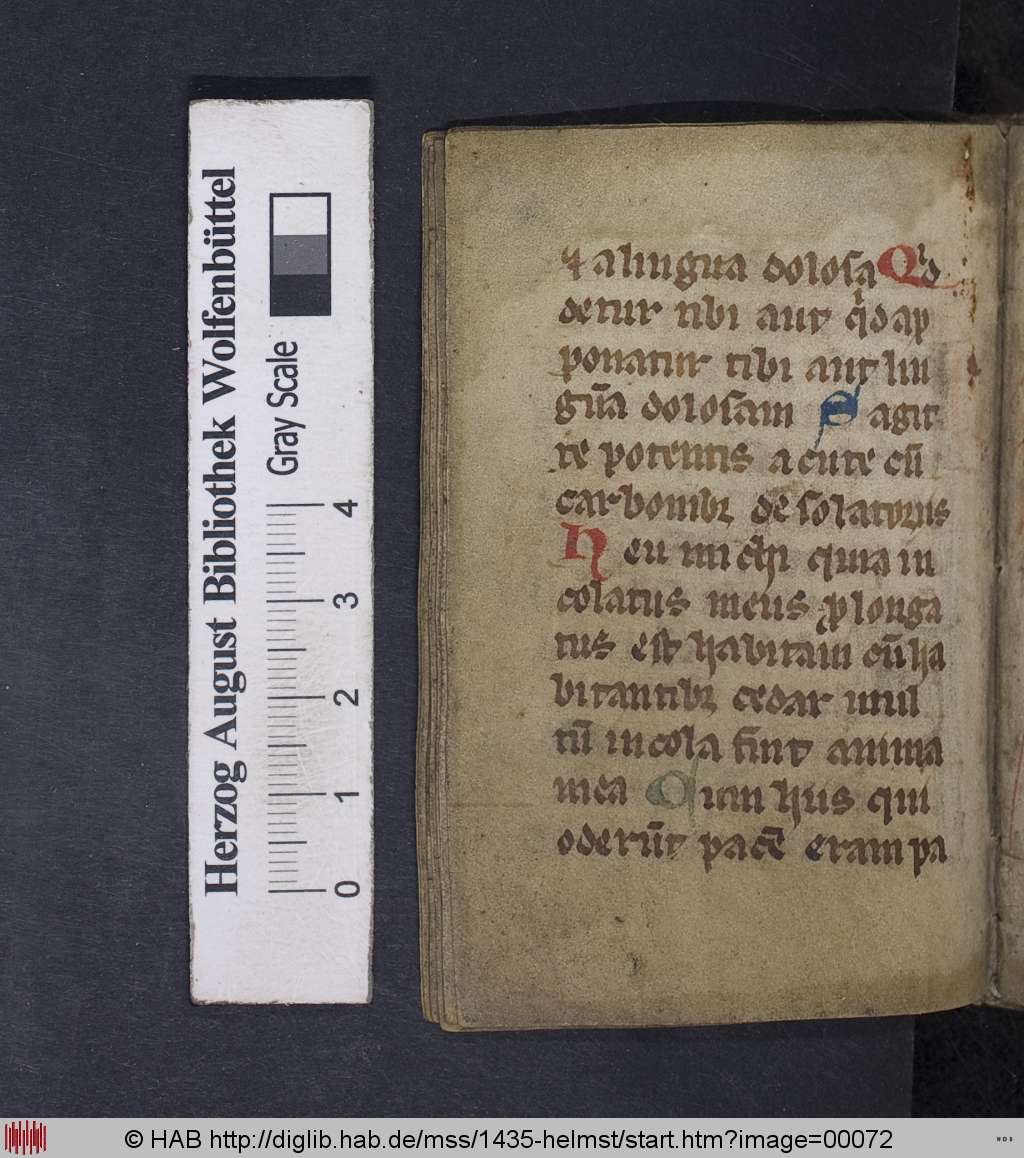 Herzog August Bibliothek Wolfenbüttel
Gray Scale
0 1 2 3 4
⁊ a lingua dolosa Qͥd
detur tibi aut qͥd ap
ponatur tibi aut lin
gūa dolosam Sagit
te potentis acute cū
carbonibꝫ desolatorus
Heu michi quia in
colatus meus ꝓlonga
tus est habitaui cū ha
bitantibꝫ cedar mul
tū incola fuit anima
mea Cum hiis qui
oderūt pacē eram pa
© HAB http://diglib.hab.de/mss/1435-helmst/start.htm?image=00072